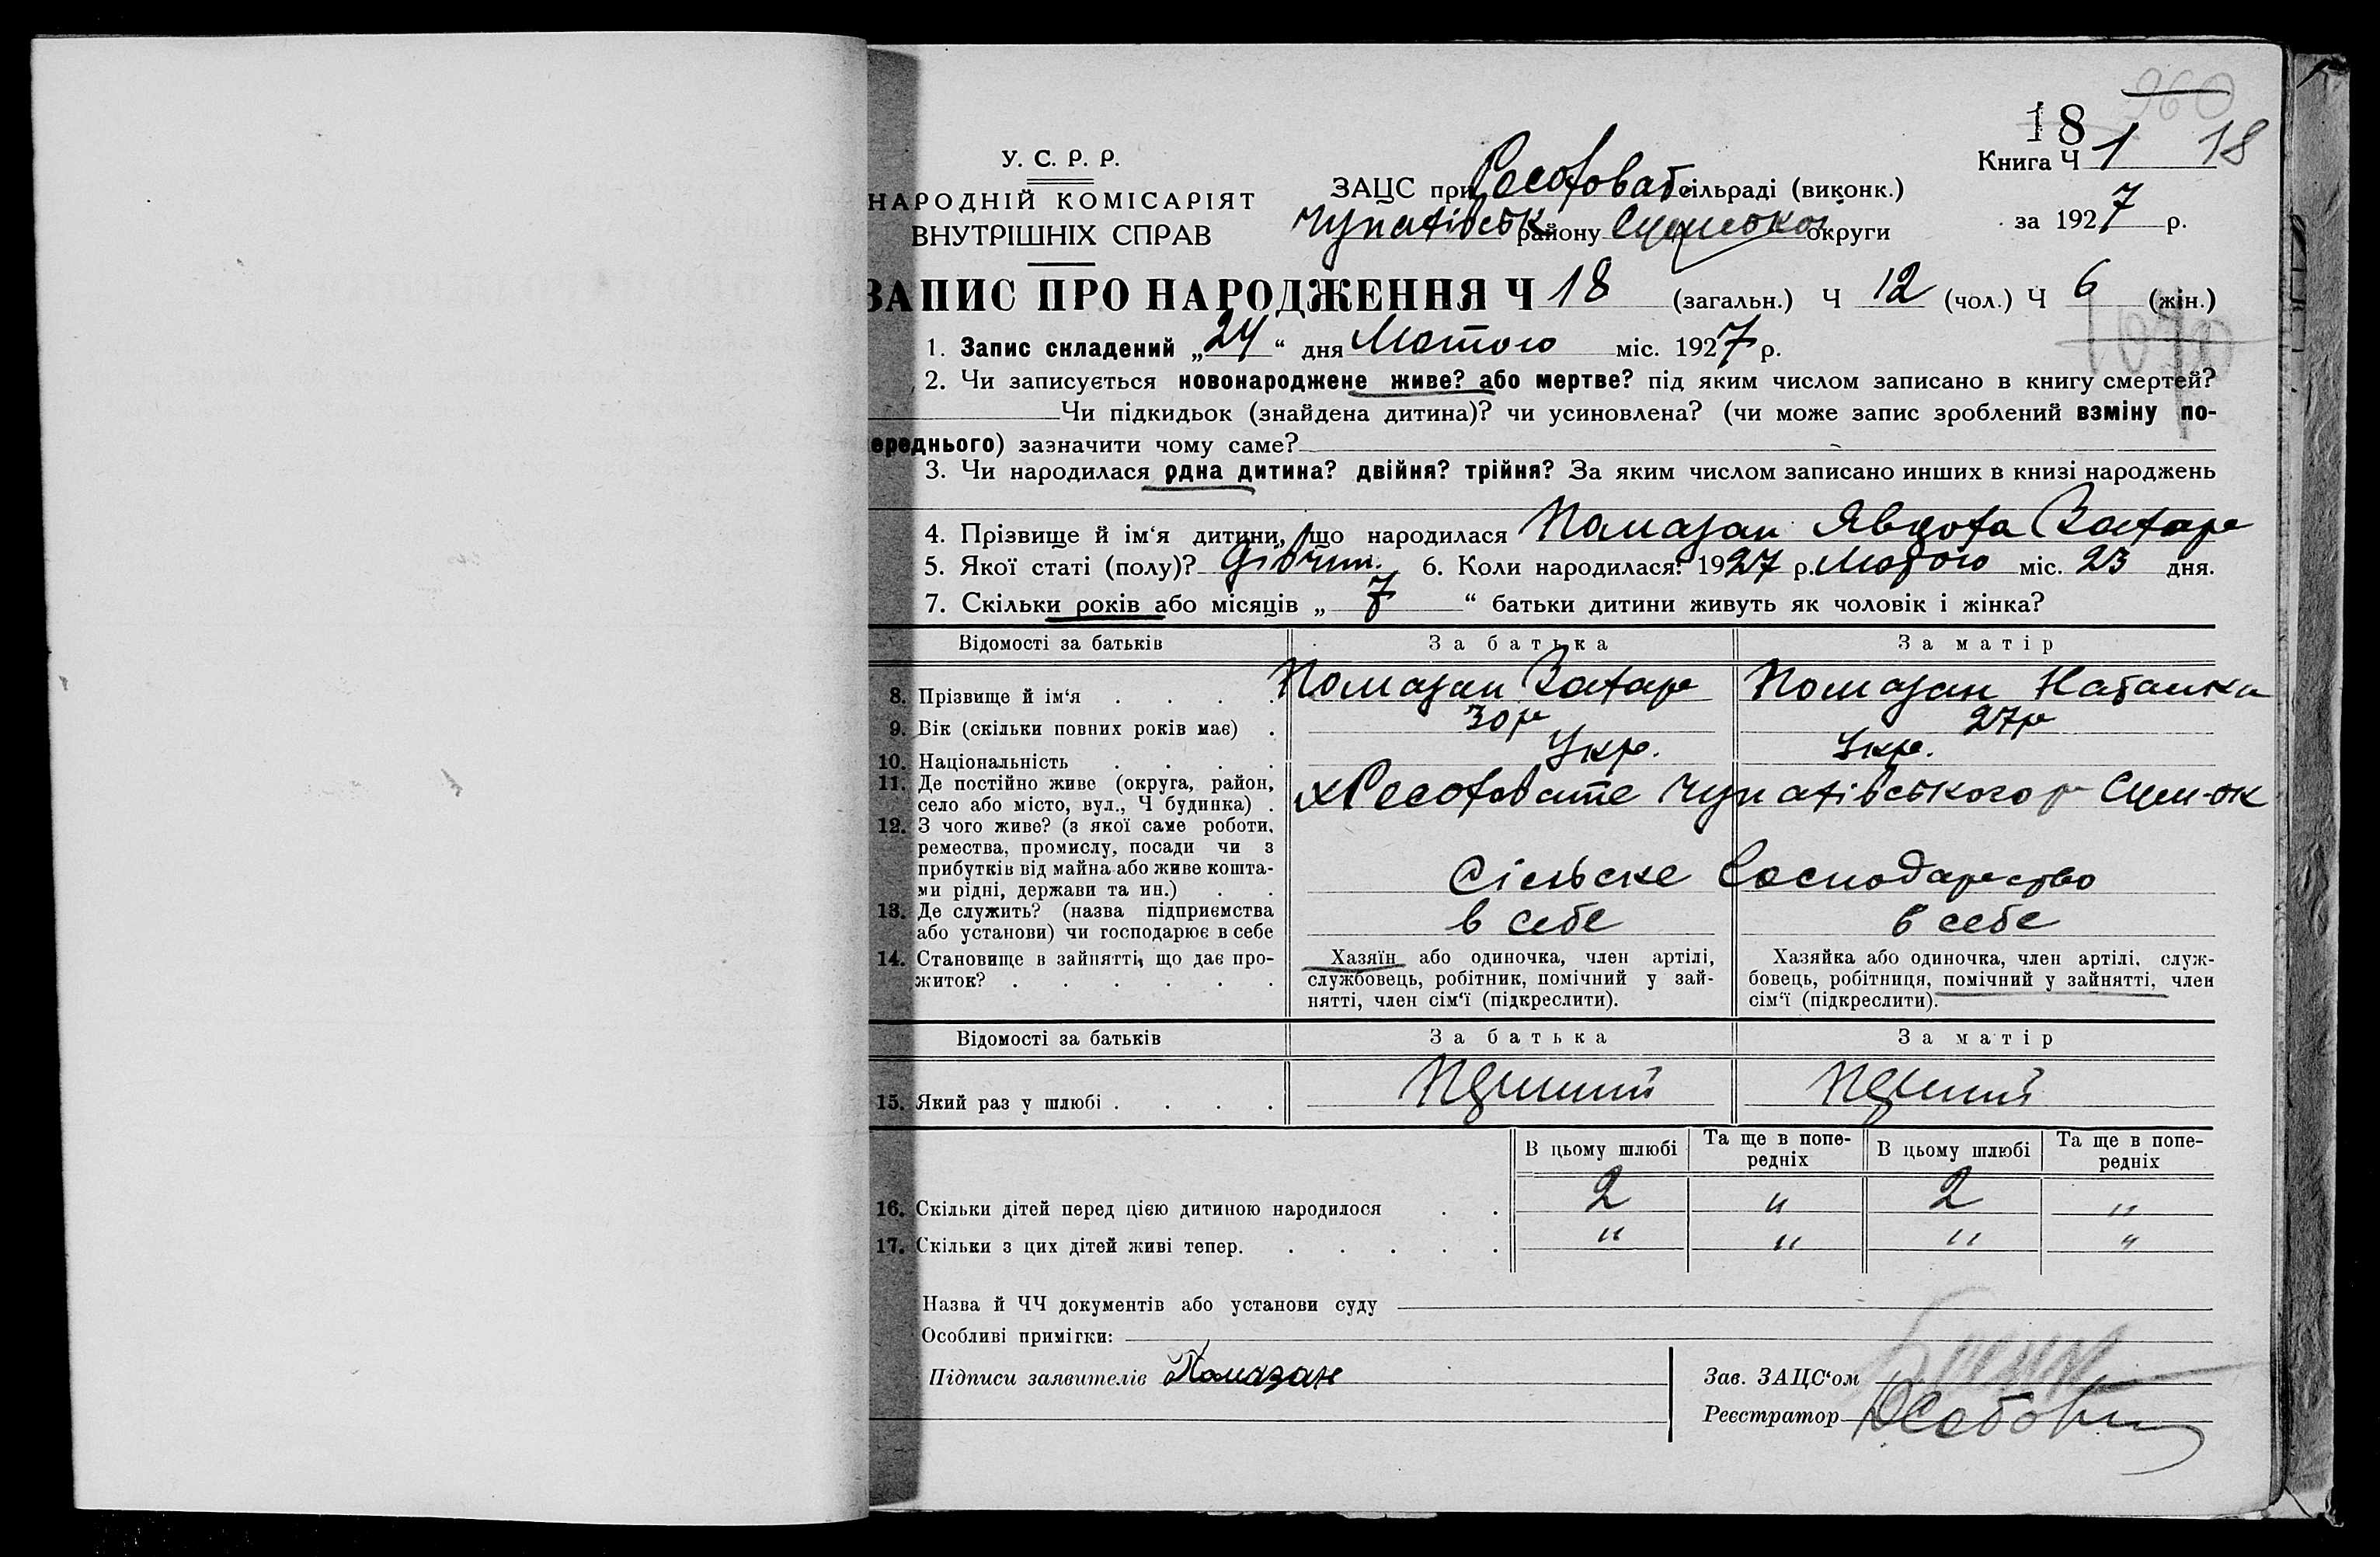 960
18
У. С. Р. Р.
Книга Ч 1 18
НАРОДНІЙ КОМІСАРІЯТ
ВНУТРІШНІХ СПРАВ
ЗАЦС при сільраді (виконк.)
Чупахівськ району Сумської округи
за 1927 р.
ЗАПИС ПРО НАРОДЖЕННЯ Ч 18 (загальн.) Ч 12 (чол.) Ч 6 (жін.)
1. Запис складений „24“ дня Лютого міс. 1927 р.
2. Чи записується новонароджене живе? або мертве? під яким числом записано в книгу смертей?
Чи підкидьок (знайдена дитина)? чи усиновлена? (чи може запис зроблений взміну по-
ереднього) зазначити чому саме?
3. Чи народилася одна дитина? двійня? трійня? За яким числом записано инших в книзі народжень
4. Прізвище й ім‘я дитини, що народилася Помазан Явдоха Захар
5. Якої статі (полу)? Дівчин. 6. Коли народилася? 1927 р. Лютого міс. 23 дня.
7. Скільки років або місяців „ 7 “ батьки дитини живуть як чоловік і жінка?
Відомості за батьків За батька За матір
8. Прізвище й ім‘я Помазан Захар Помазан Наталка
9. Вік (скільки повних років має) 30 р 27 р
10. Національність Укр. Укр.
11. Де постійно живе (округа, район,
село або місто, вул., Ч будинка) Чупахівського р Сум-ок
12. З чого живе? (з якої саме роботи,
ремества, промислу, посади чи з
прибутків від майна або живе кошта-
ми рідні, держави та ин.) Сільське Господарство
13. Де служить? (назва підприємства
або установи) чи господарює в себе в себе в себе
14. Становище в зайнятті, що дає про-
житок?
Хазяїн або одиночка, член артілі,
службовець, робітник, помічний у зай-
нятті, член сім‘ї (підкреслити).
Хазяйка або одиночка, член артілі, служ-
бовець, робітниця, помічний у зайнятті, член
сім‘ї (підкреслити).
Відомості за батьків За батька За матір
15. Який раз у шлюбі
В цьому шлюбі Та ще в попе-
редніх В цьому шлюбі Та ще в попе-
редніх
16. Скільки дітей перед цією дитиною народилося 2 " 2 "
17. Скільки з цих дітей живі тепер. " " " "
Назва й ЧЧ документів або установи суду
Особливі примітки:
Підписи заявителів Помазан
Зав. ЗАЦС‘ом
Реєстратор